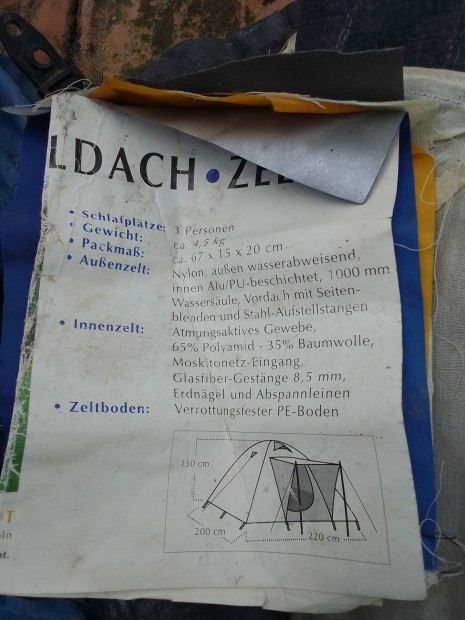 LDACH • ZEL
• Schlafplätze: 3 Personen
• Gewicht: ca. 4,5 kg
• Packmaß: ca. 67 x 15 x 20 cm
• Außenzelt: Nylon, außen wasserabweisend,
innen Alu/PU-beschichtet, 1000 mm
Wassersäule, Vordach mit Seiten-
blenden und Stahl-Aufstellstangen
• Innenzelt: Atmungsaktives Gewebe,
65% Polyamid - 35% Baumwolle,
Moskitonetz-Eingang,
Glasfiber-Gestänge 8,5 mm,
Erdnägel und Abspannleinen
• Zeltboden: Verrottungsfester PE-Boden
130 cm
200 cm
220 cm